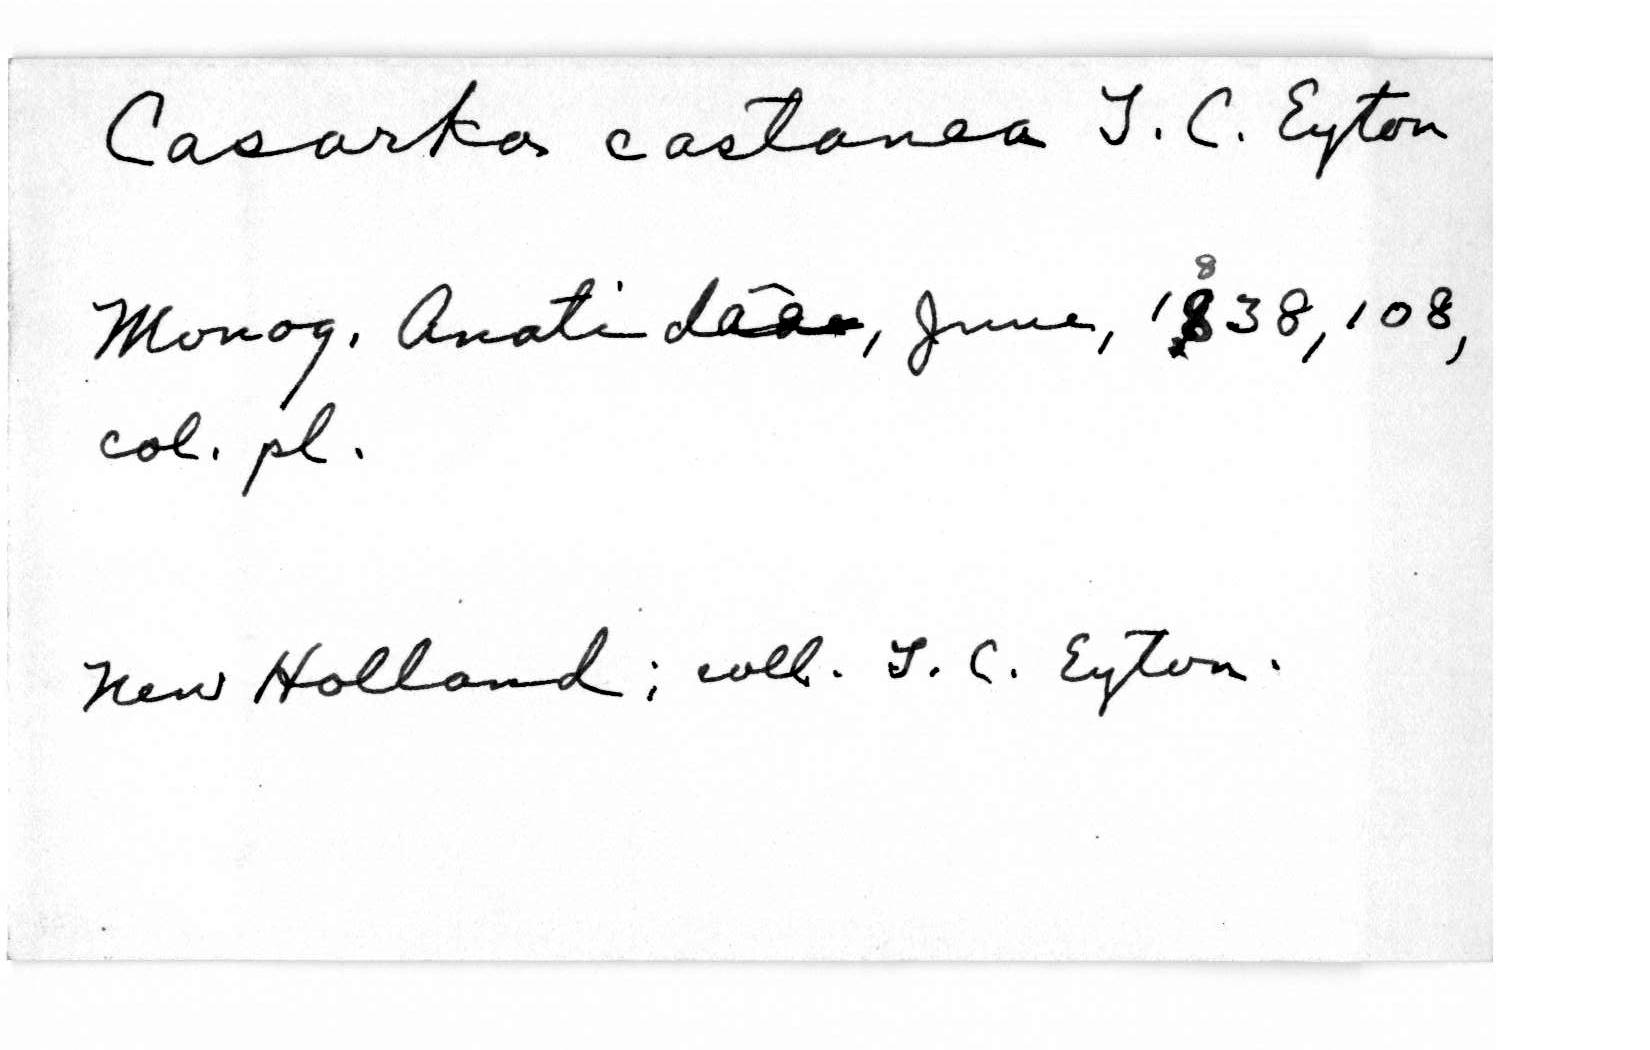 Casarka castanea T. C. Eyton
Monog. Anatidae, June, 1838, 108,
col. pl.
New Holland; coll. T. C. Eyton.